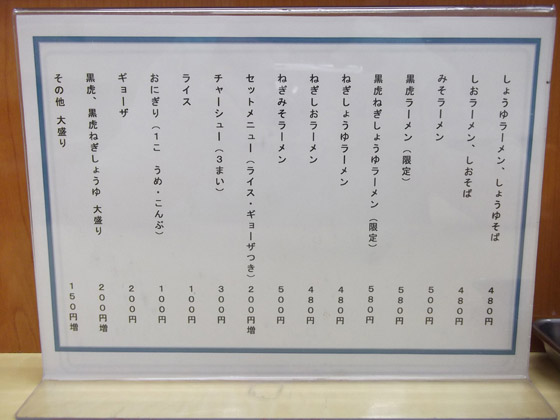 しょうゆラーメン、しょうゆそば 480円
しおラーメン、しおそば 480円
みそラーメン 500円
黒虎ラーメン（限定） 580円
黒虎ねぎしょうゆラーメン（限定） 580円
ねぎしょうゆラーメン 480円
ねぎしおラーメン 480円
ねぎみそラーメン 500円
セットメニュー（ライス・ギョーザつき） 200円増
チャーシュー（3まい） 300円
ライス 100円
おにぎり（1こ うめ・こんぶ） 100円
ギョーザ 200円
黒虎、黒虎ねぎしょうゆ 大盛り 200円増
その他 大盛り 150円増